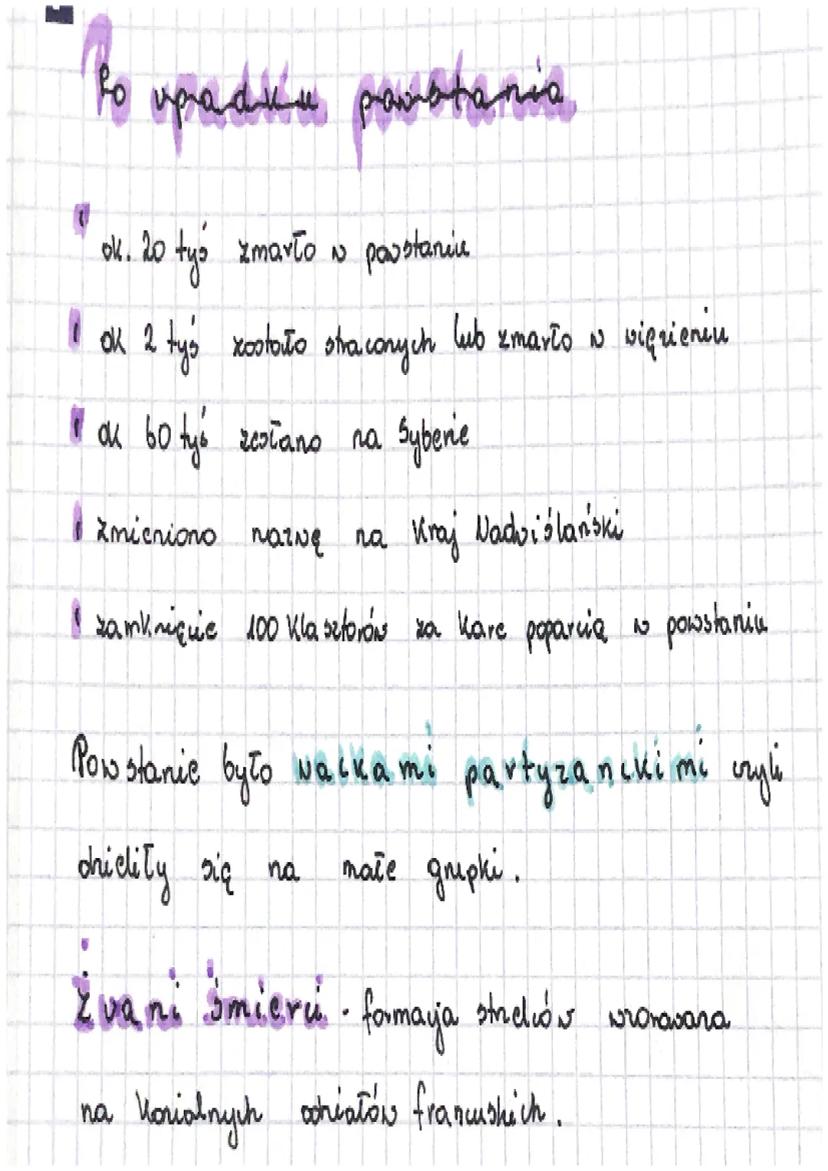 Po upadku powstania
ok. 20 tyś zmarło w powstaniu
ok 2 tyś zostało straconych lub zmarło w więzieniu
ok 60 tyś zesłano na Syberie
zmieniono nazwę na Kraj Nadwiślański
zamknięcie 100 klasztorów za kare poparcia w powstaniu
Powstanie było walkami partyzanckimi czyli
dzieliły się na małe grupki.
Żuani śmierci - formacja strzelców wzorowana
na kolonialnych oddziałów francuskich.